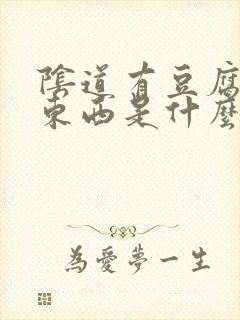 陰道有豆腐
東西是什麼
為愛夢一生